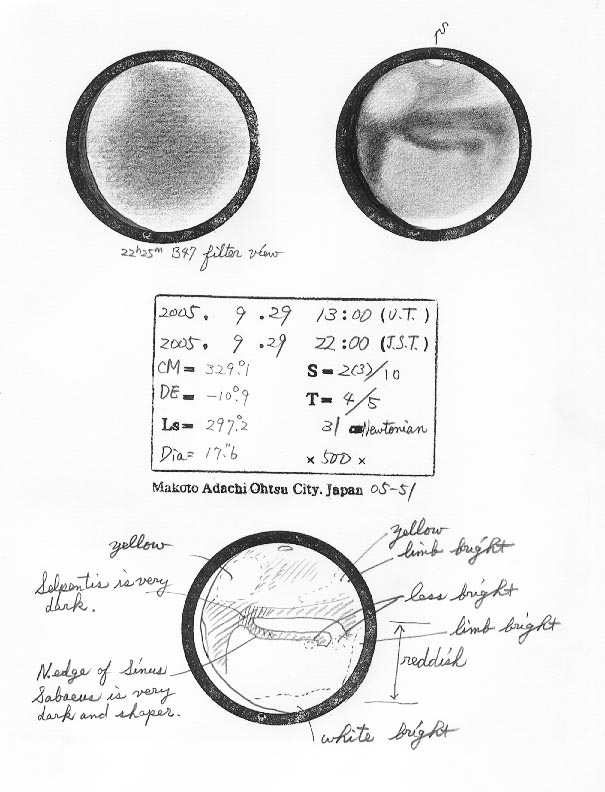 S
22h25m B47 filter view
2005. 9 .29 13:00 (U.T.)
2005. 9 .29 22:00 (J.S.T.)
CM= 329.°1 S= 2(3)/10
DE= -10.°9 T= 4/5
Ls= 297.°2 31 Newtonian
Dia= 17."6 × 500 ×
Makoto Adachi Ohtsu City. Japan 05-51
yellow
yellow
limb bright
Selpentis is very
dark.
less bright
limb bright
reddish
N.edge of Sinus
Sabaeus is very
dark and shaper.
white bright